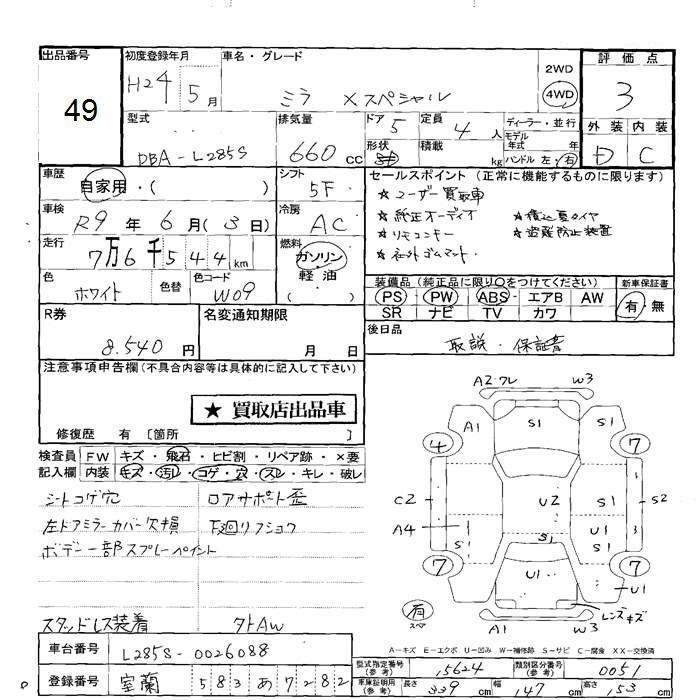 出品番号 49
初度登録年月 H24 5月
車名・グレード ミラ Xスペシャル
2WD 4WD
評価点 3
型式 DBA-L285S
排気量 660cc
ドア 5
形状
定員 4人
積載 kg
ディーラー・並行
モデル年式 年
ハンドル 左・右
外装 D
内装 C
車歴 自家用・( )
シフト 5F
車検 R9年6月(3日)
冷房 AC
走行 7万6千544km
燃料 ガソリン 軽油 ( )
色 ホワイト
色替
色コード W09
セールスポイント (正常に機能するものに限ります)
★ユーザー買取車
★純正オーディオ ★積込夏タイヤ
★リモコンキー ★盗難防止装置
★ゴムマット
装備品 (純正品に限り○をつけてください)
PS・PW・ABS・エアB AW
SR ナビ TV カワ
新車保証書 有 無
R券 8.540円
名変通知期限 月 日
後日品 取説・保証書
注意事項申告欄 (不具合内容等は具体的に記入して下さい)
★ 買取店出品車
修復歴 有 〔箇所 〕
検査員記入欄
FW キズ・飛石・ヒビ割・リペア跡・×要
内装 キズ・汚レ・コゲ・穴・スレ・キレ・破レ
シートコゲ穴 ロアサポート歪
左ドアミラーカバー欠損 下廻リフショウ
ボデー一部スプレーペイント
スタッドレス装着 夕トAW
A2.ワレ W3
A1 S1 S1
4 7
C2 U2 S1 S2
A4 S1 S1 U1
7 U1 7
U1
有 スペア
A1 W3 レンズキズ
A-キズ E-エクボ U-凹み W-補修跡 S-サビ C-腐食 XX-交換済
車台番号 L285S-0026088
登録番号 室蘭 583 あ 7282
型式指定番号(参考) 15624
類別区分番号(参考) 0051
車庫証明用(参考) 長さ 339cm 幅 147cm 高さ 153cm